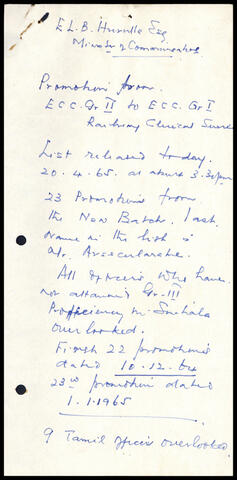 E.L.B. Hurulle Esq
Minister of Communications
Promotions from
E.C.C. Gr II to E.C.C. Gr I
Railway Clerical Service
List released today.
20.4.65. at about 3.30pm
23 Promotions from
the New Batch. Last
name in the list is
Mr. Arsecularatne.
All officers who have
not attained Gr. III
Proficiency in Sinhala
overlooked.
First 22 promotions
dated 10.12.64
23rd promotion dated
1.1.1965
9 Tamil officers overlooked